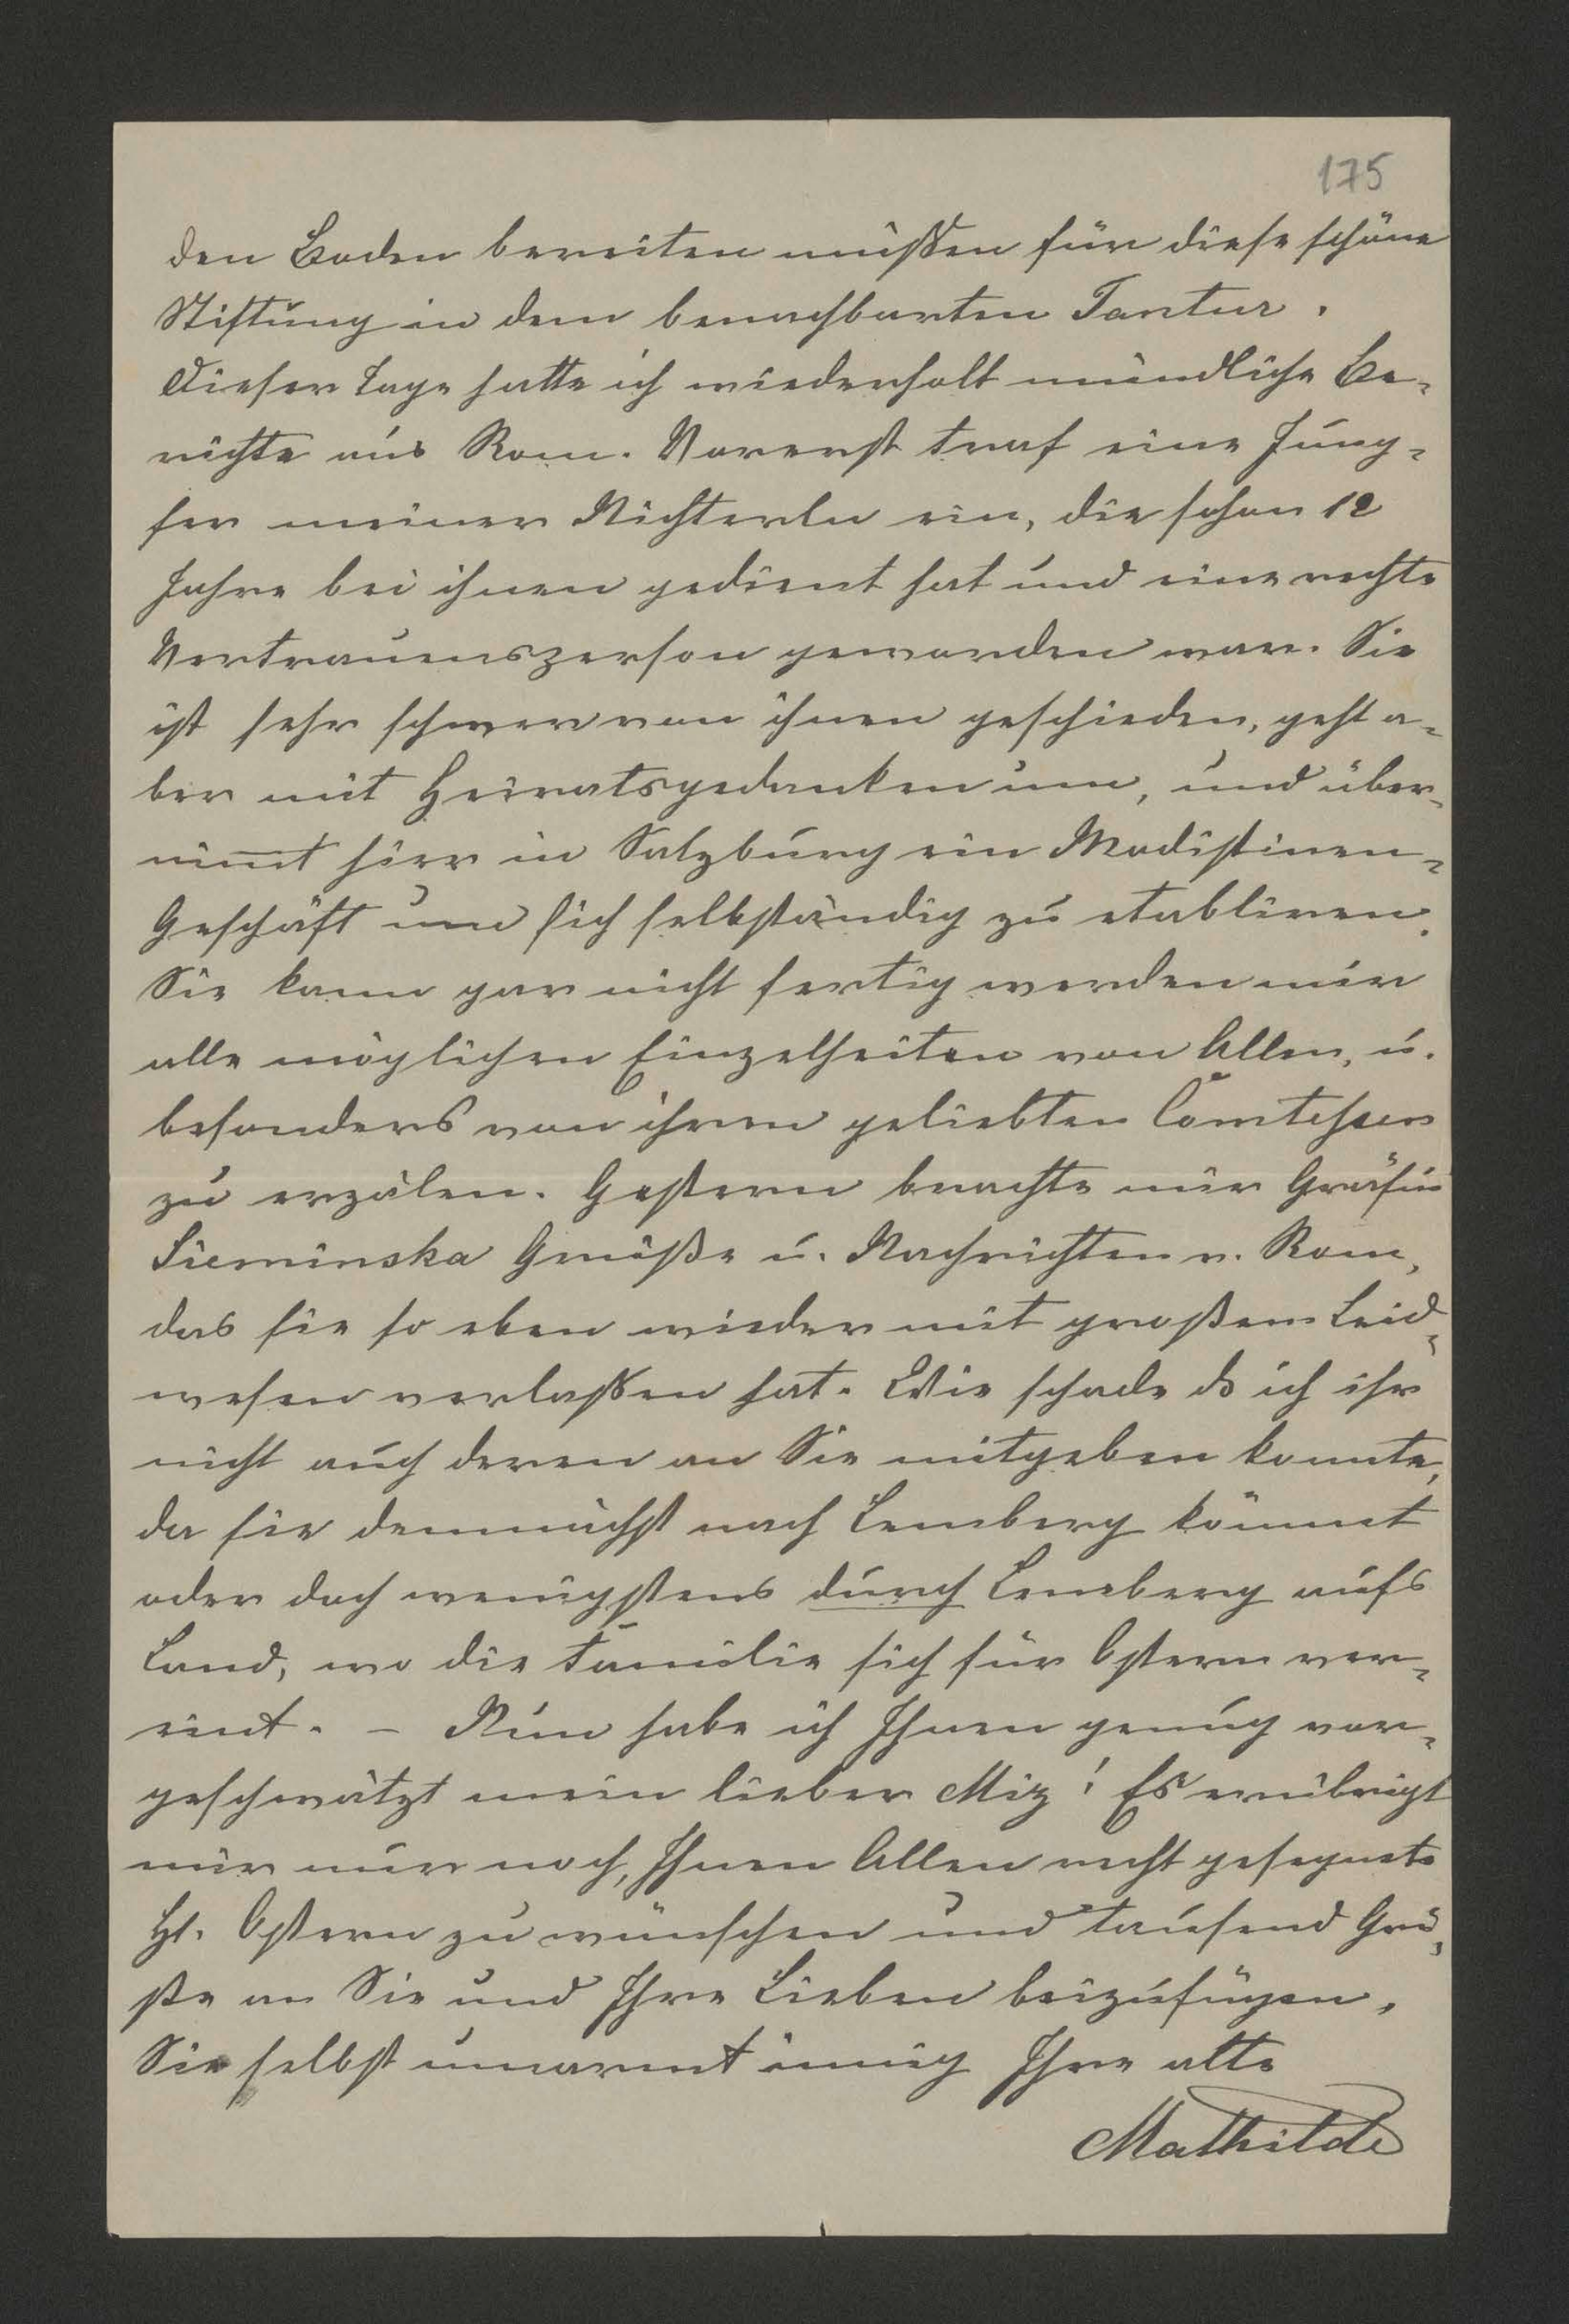 175
den Boden bereiten müssen für diese schöne
Stiftung in dem benachbarten Tantur.
Dieser Tage hatte ich wiederholt mündliche Be-
richte aus Rom. Vorerst traf eine Jung-
fer meiner Nichterln ein, die schon 12
Jahre bei ihnen gedient hat und eine rechte
Vertrauensperson geworden war. Sie
ist sehr schwer von ihnen geschieden, geht a-
ber mit Heiratsgedanken um, und über-
nim̅t hier in Salzburg ein Modistinen-
Geschäft um sich selbständig zu etabliren.
Sie kann gar nicht fertig werden mir
alle möglichen Einzelheiten von Allen, u.
besonders von ihren geliebten Comtessen
zu erzälen. Gestern brachte mir Gräfin
Sieminska Grüße u. Nachrichten v. Rom,
das sie so eben wieder mit großem Leid-
wesen verlassen hat. Wie schade ds ich ihr
nicht auch deren an Sie mitgeben konnte,
da sie demnächst nach Lemberg kömmt
oder doch wenigstens durch Lemberg aufs
Land, wo die Familie sich für Ostern ver-
eint. – Nun habe ich Ihnen genug vor-
geschwätzt mein lieber Miz! Es erübrigt
mir nur noch, Ihnen Allen recht gesegnete
hl. Ostern zu wünschen und tausend Grü-
ße an Sie und Ihre Lieben beizufügen.
Sie selbst umarmt innig Ihre alte
Mathilde